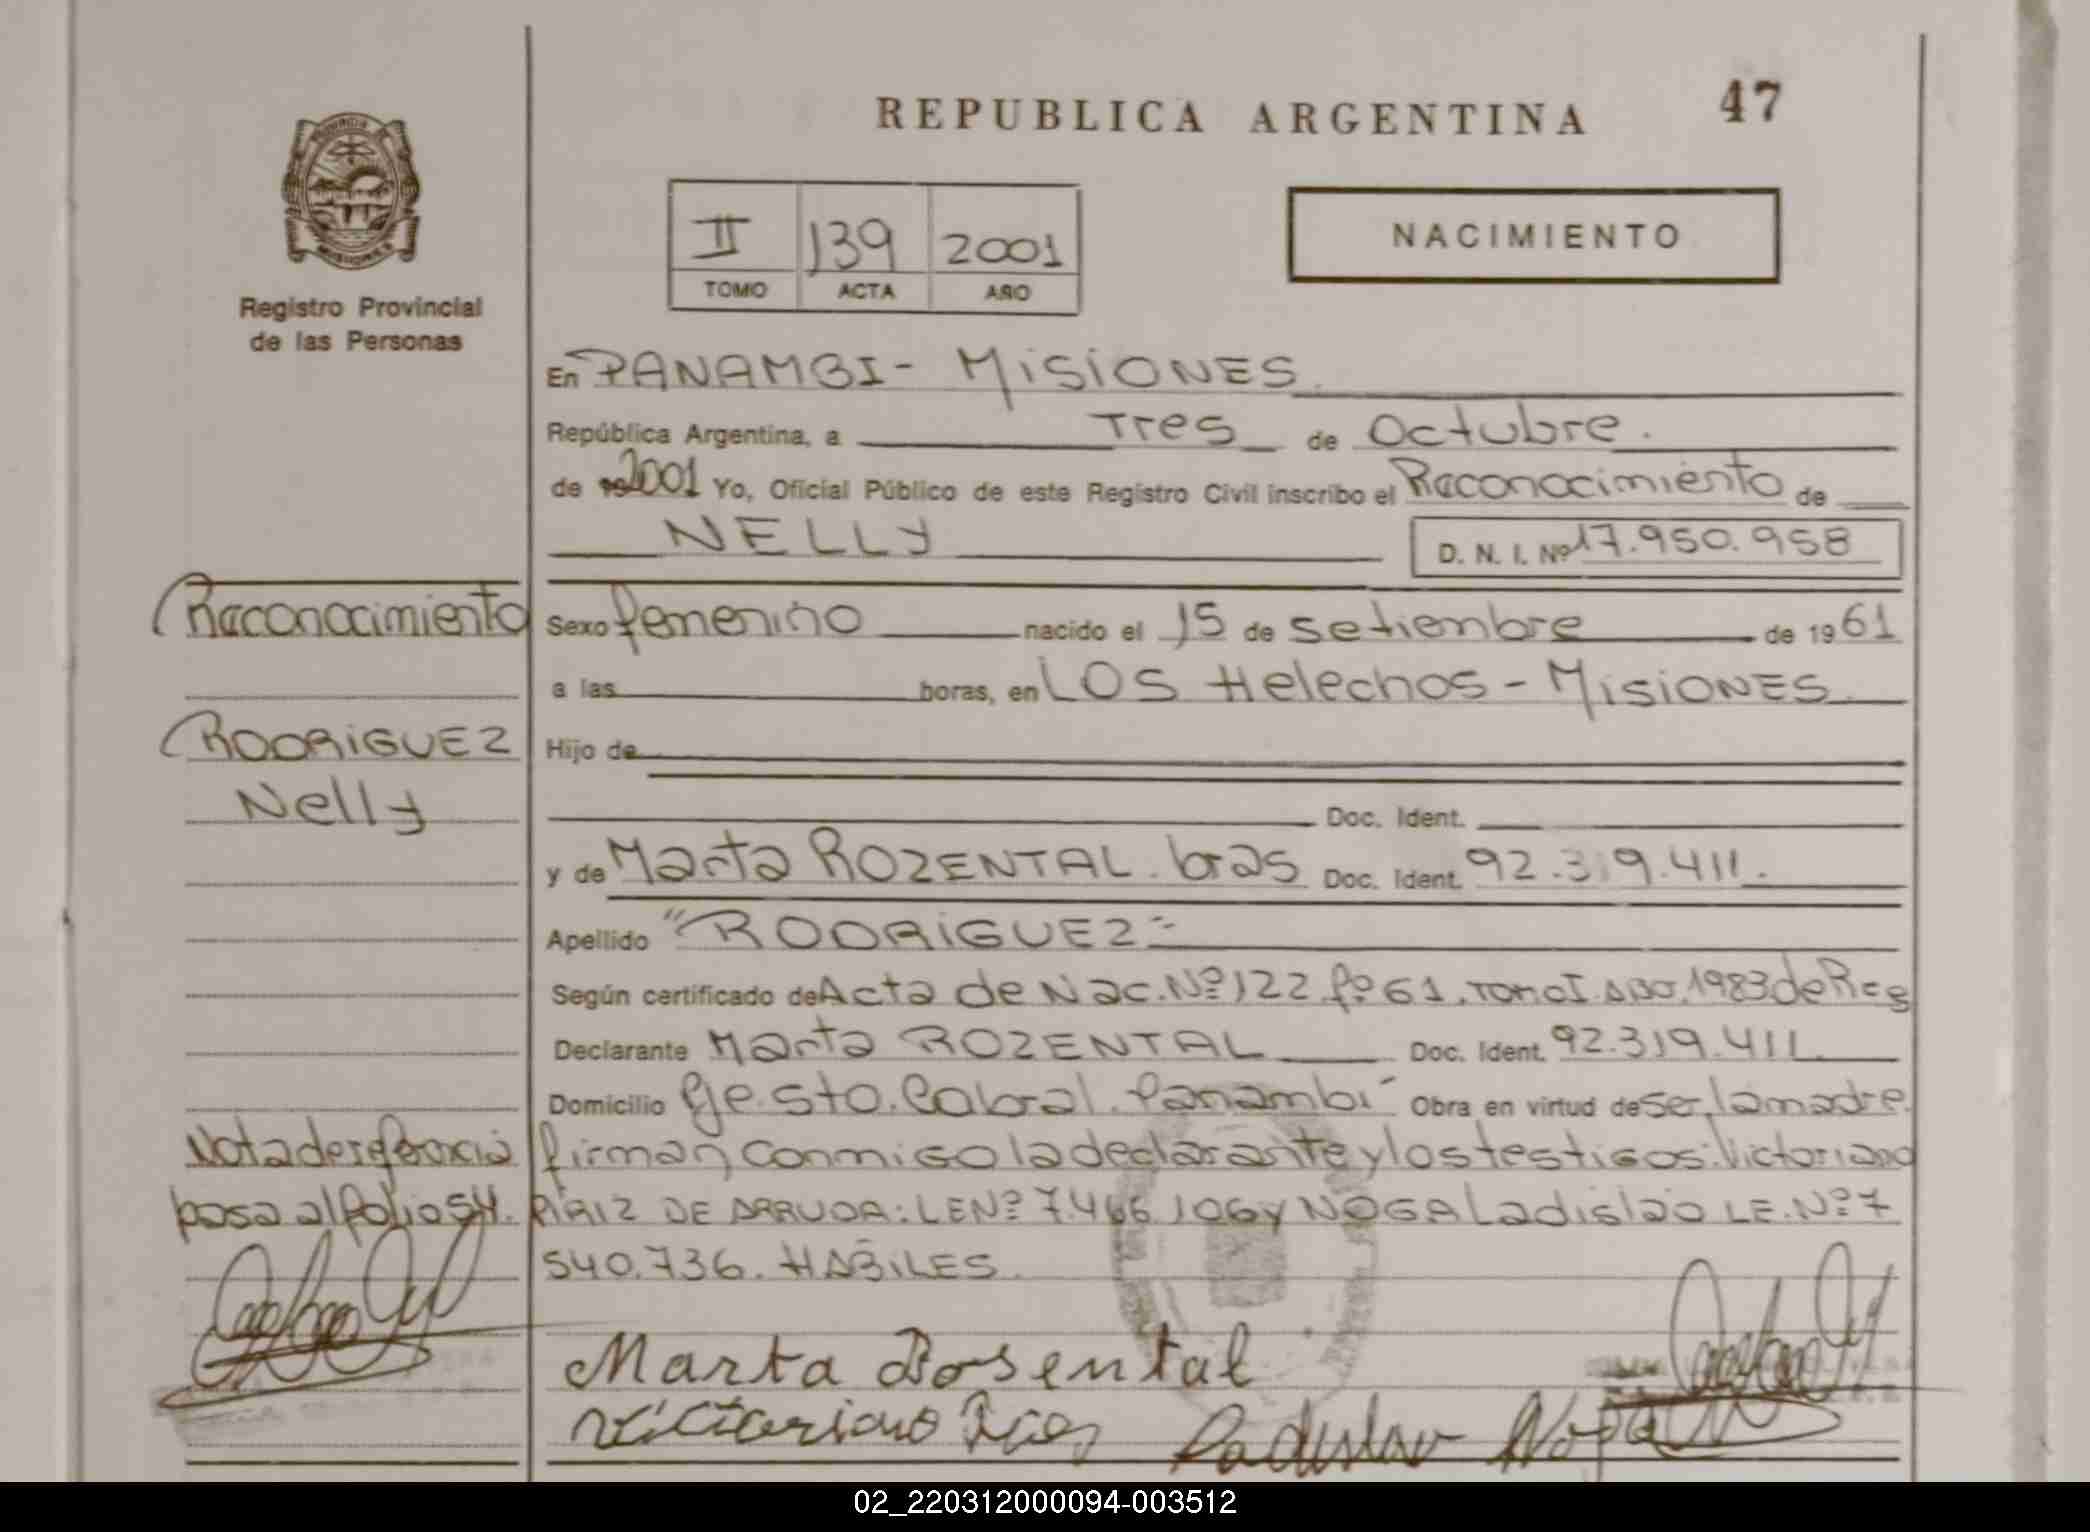 REPUBLICA ARGENTINA
47
II 139 2001
TOMO ACTA AÑO
NACIMIENTO
Registro Provincial
de las Personas
En PANAMBI - MISIONES.
República Argentina, a Tres de Octubre.
de 2001 Yo, Oficial Público de este Registro Civil inscribo el Reconocimiento de
NELLY
D. N. I. Nº 17.950.958
Reconocimiento
Sexo femenino nacido el 15 de setiembre de 1961
a las horas, en LOS Helechos - MISIONES
RODRIGUEZ
Nelly
Hijo de
Doc. Ident.
y de Marta ROZENTAL. bras Doc. Ident. 92.319.411.
Apellido "RODRIGUEZ"
Según certificado de Acta de Nac. Nº 122 fº 61. Tomo I. AÑO. 1983 de Reg
Declarante Marta ROZENTAL Doc. Ident. 92.319.411.
Domicilio Pje. Sto. Cabral. Panambi Obra en virtud de ser la madre.
Nota de referencia
pasa al folio 54.
firman conmigo la declarante y los testigos: Victoriano
PIRIZ DE ARRUDA: LE Nº 7.466.106 y NOGA Ladislao LE. Nº 7
540.736. HABILES.
Marta Rosental
Ladislao Noga
02_220312000094-003512